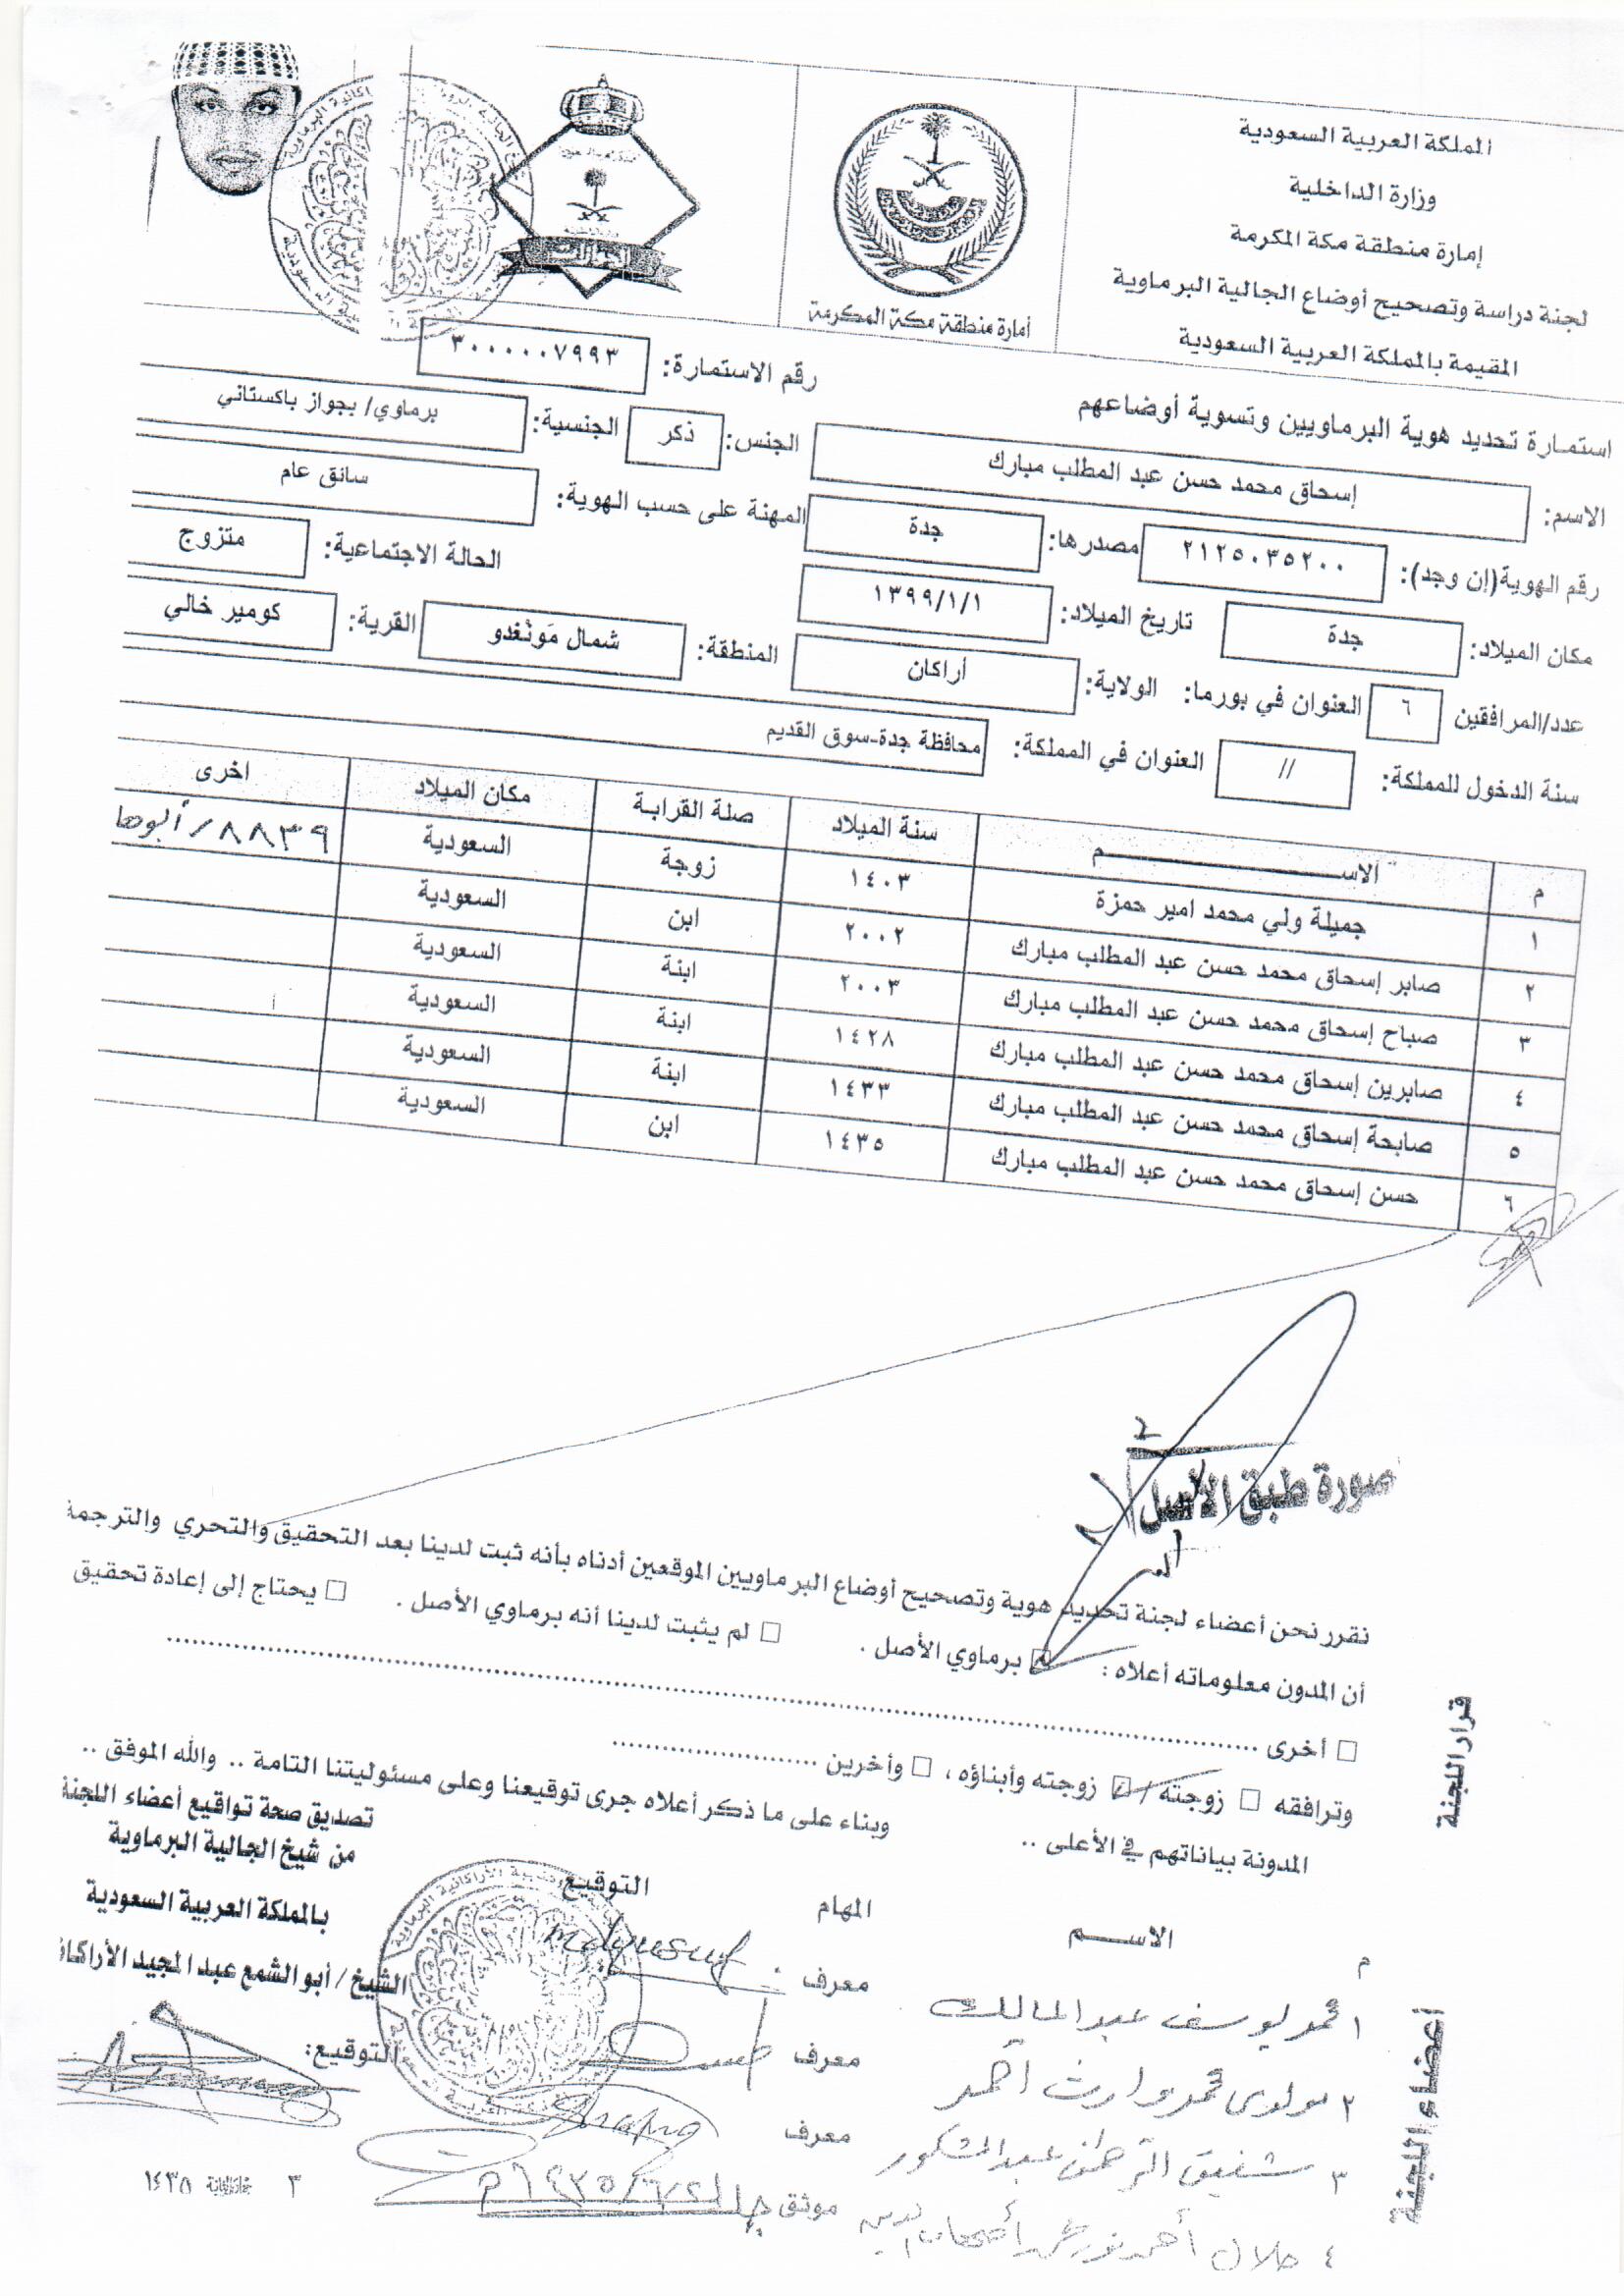 المملكة العربية السعودية
وزارة الداخلية
إمارة منطقة مكة المكرمة
لجنة دراسة وتصحيح أوضاع الجالية البرماوية
المقيمة بالمملكة العربية السعودية
أمارة منطقة مكة المكرمة
استمارة تحديد هوية البرماويين وتسوية أوضاعهم
رقم الاستمارة: ٣٠٠٠٠٠٧٩٩٣
الاسم: إسحاق محمد حسن عبد المطلب مبارك الجنس: ذكر الجنسية: برماوي/ بجواز باكستاني
رقم الهوية(إن وجد): ٢١٢٥٠٣٥٢٠٠ مصدرها: جدة المهنة على حسب الهوية: سائق عام
مكان الميلاد: جدة تاريخ الميلاد: ١٣٩٩/١/١ الحالة الاجتماعية: متزوج
عدد/المرافقين ٦ العنوان في بورما: الولاية: أراكان المنطقة: شمال مَونْغدو القرية: كومير خالي
سنة الدخول للمملكة: // العنوان في المملكة: محافظة جدة-سوق القديم
م الاســـــم سنة الميلاد صلة القرابة مكان الميلاد اخرى
١ جميلة ولي محمد امير حمزة ١٤٠٣ زوجة السعودية ٨٨٣٩/أبوها
٢ صابر إسحاق محمد حسن عبد المطلب مبارك ٢٠٠٢ ابن السعودية
٣ صباح إسحاق محمد حسن عبد المطلب مبارك ٢٠٠٣ ابنة السعودية
٤ صابرين إسحاق محمد حسن عبد المطلب مبارك ١٤٢٨ ابنة السعودية
٥ صابحة إسحاق محمد حسن عبد المطلب مبارك ١٤٣٣ ابنة السعودية
٦ حسن إسحاق محمد حسن عبد المطلب مبارك ١٤٣٥ ابن السعودية
صورة طبق الأصل
قرار اللجنة
نقرر نحن أعضاء لجنة تحديد هوية وتصحيح أوضاع البرماويين الموقعين أدناه بأنه ثبت لدينا بعد التحقيق والتحري والترجمة
أن المدون معلوماته أعلاه : ☑ برماوي الأصل . □ لم يثبت لدينا أنه برماوي الأصل . □ يحتاج إلى إعادة تحقيق
□ أخرى
وترافقه □ زوجته / ☑ زوجته وأبناؤه ، □ وأخرين
المدونة بياناتهم في الأعلى .. وبناء على ما ذكر أعلاه جرى توقيعنا وعلى مسئوليتنا التامة .. والله الموفق ..
أعضاء اللجنة
م الاســـم المهام التوقيع
١ محمد يوسف عبدالمالك معرف md yusuf
٢ مولوى محمد وارث احمد معرف
٣ شفيق الرحمن عبدالشكور معرف
٤ جلال أحمد نور موثق
تصديق صحة تواقيع أعضاء اللجنة
من شيخ الجالية البرماوية
بالمملكة العربية السعودية
الشيخ / أبو الشمع عبد المجيد الأراكا
التوقيع:
٣ ١٤٣٥